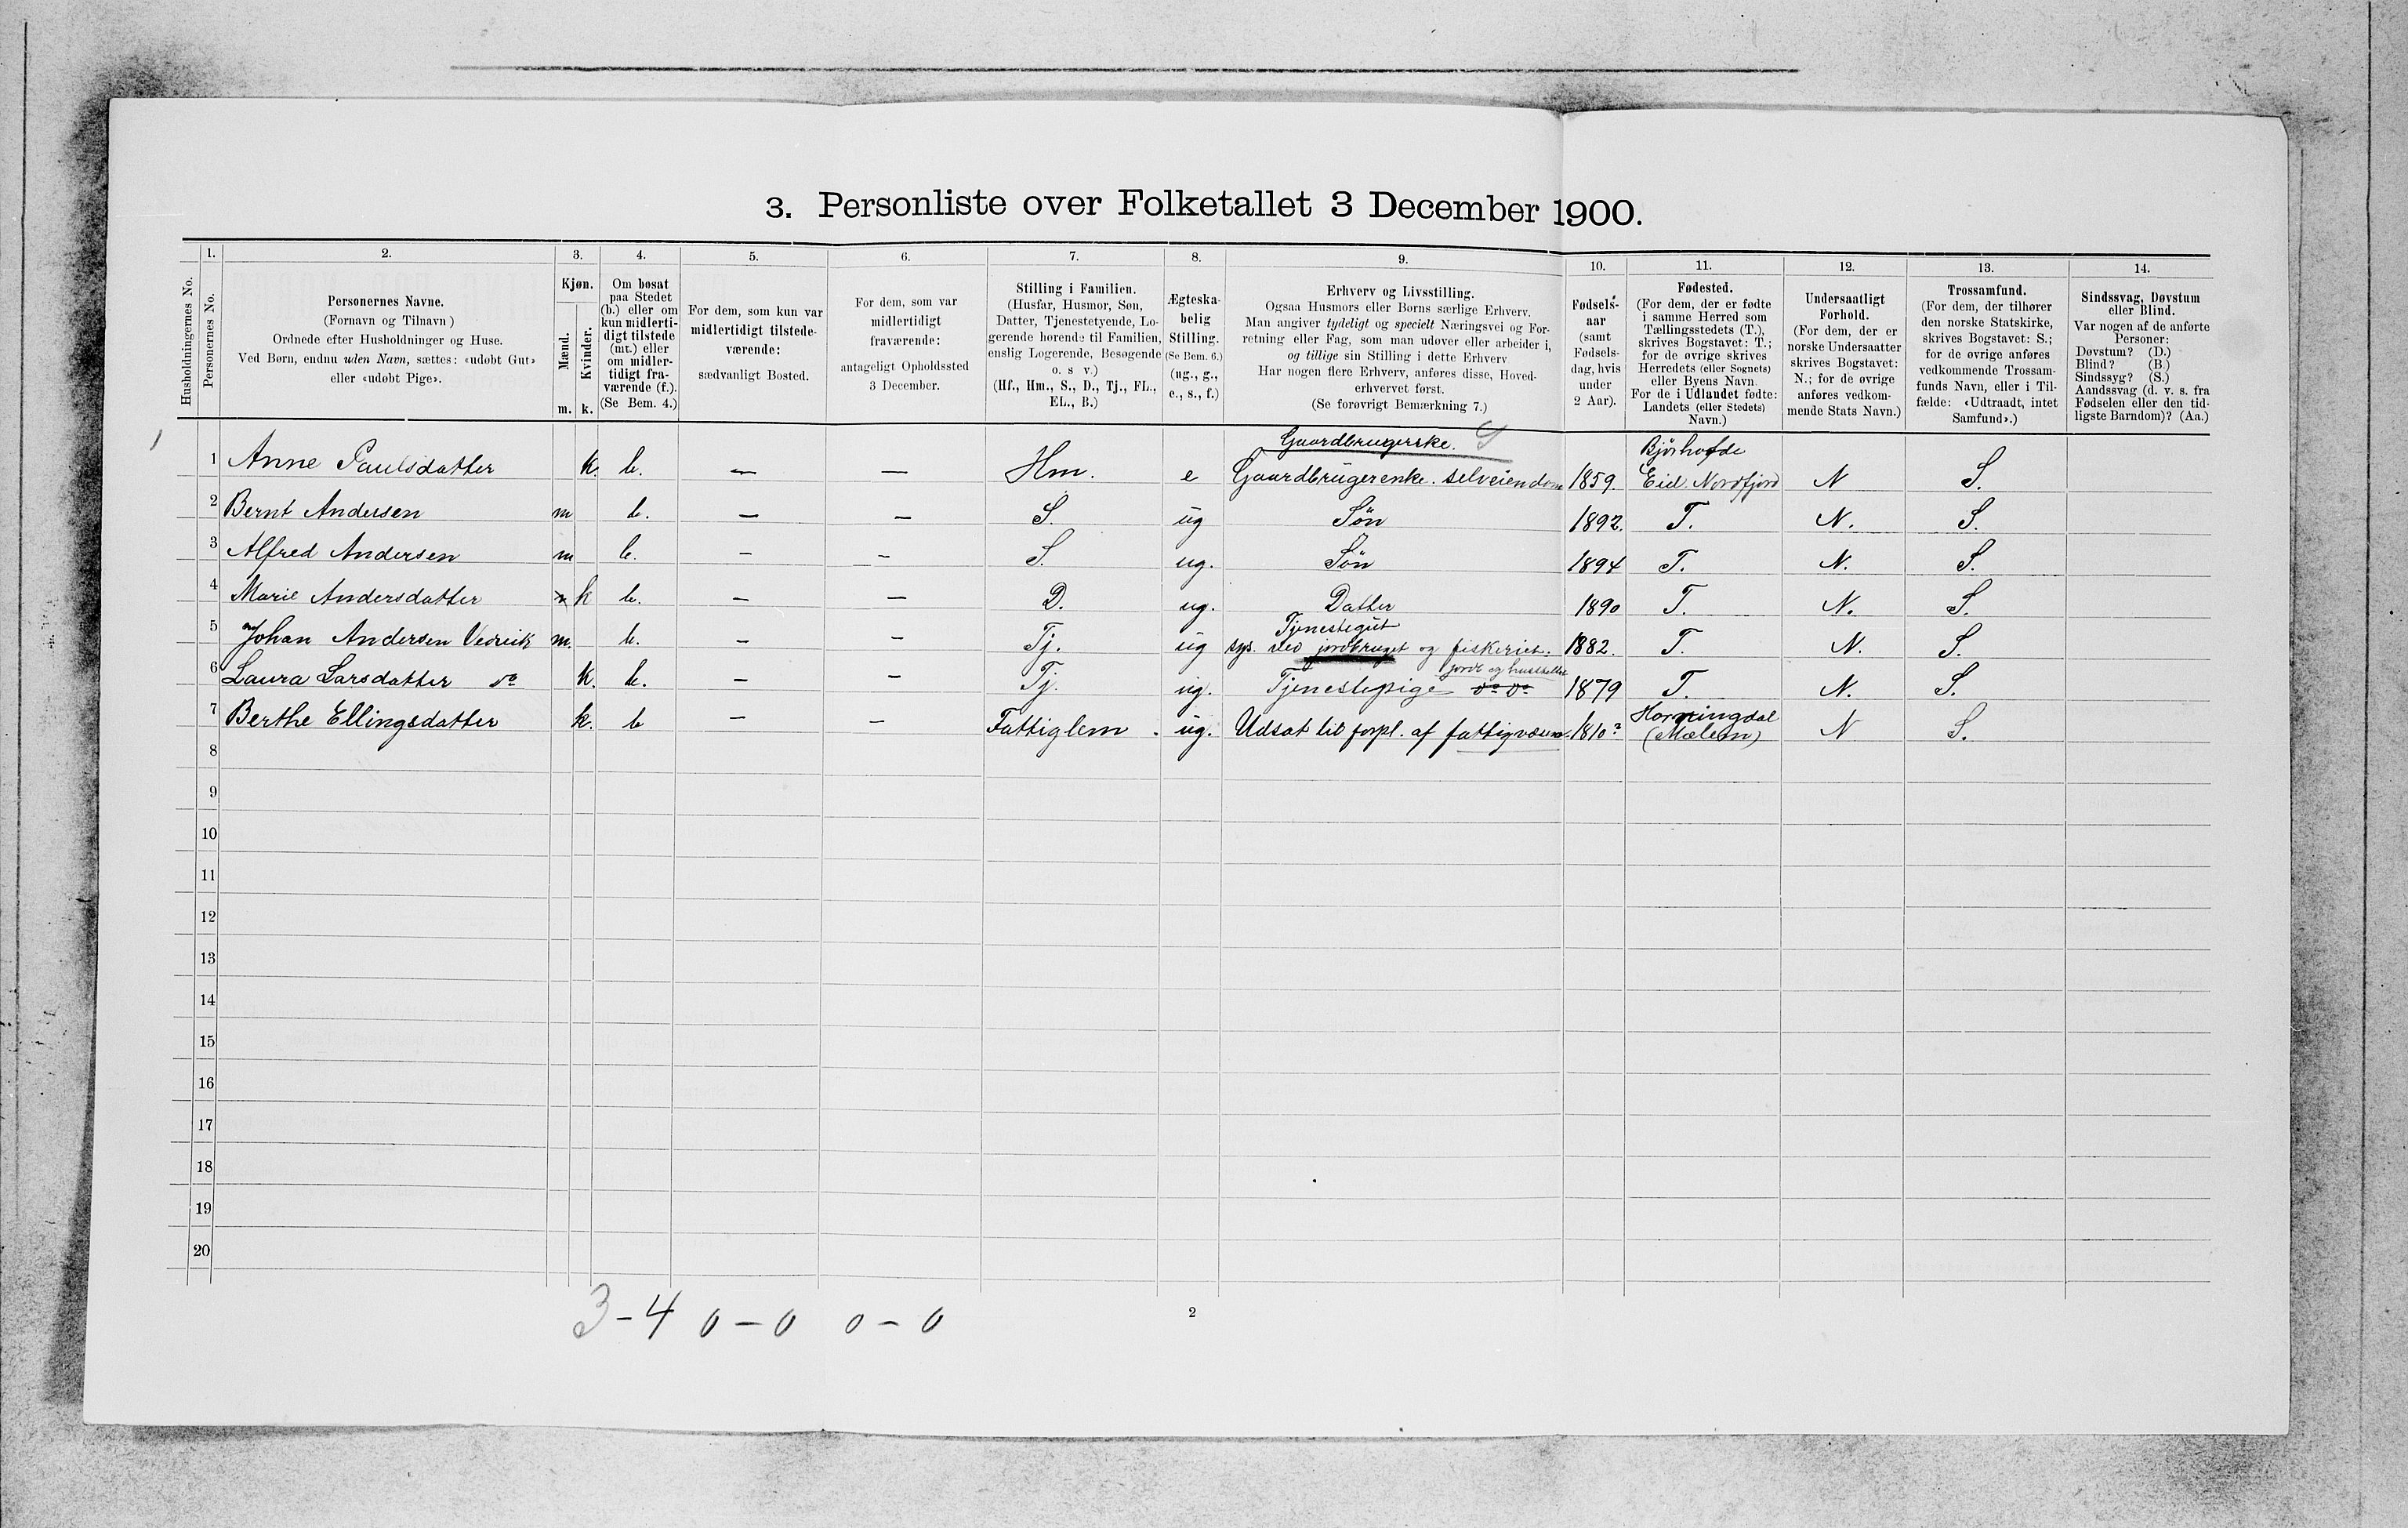 3. Personliste over Folketallet 3 December 1900.
Husholdningernes No.
1.
Personernes No.
2.
Personernes Navne.
(Fornavn og Tilnavn)
Ordnede efter Husholdninger og Huse.
Ved Børn, endnu uden Navn, sættes: «udøbt Gut»
eller «udøbt Pige».
3.
Kjøn.
Mænd.
Kvinder.
m. k.
4.
Om bosat
paa Stedet
(b.) eller om
kun midlerti-
digt tilstede
(mt.) eller
om midler-
tidigt fra-
værende (f.).
(Se Bem. 4.)
5.
For dem, som kun var
midlertidigt tilstede-
værende:
sædvanligt Bosted.
6.
For dem, som var
midlertidigt
fraværende:
antageligt Opholdssted
3 December.
7.
Stilling i Familien.
(Husfar, Husmor, Søn,
Datter, Tjenestetyende, Lo-
gerende hørende til Familien,
enslig Logerende, Besøgende
o. s v.)
(Hf., Hm., S., D., Tj., FL.,
EL., B.)
8.
Ægteska-
belig
Stilling.
(Se Bem. 6.)
(ug., g.,
e., s., f.)
9.
Erhverv og Livsstilling.
Ogsaa Husmors eller Børns særlige Erhverv.
Man angiver tydeligt og specielt Næringsvei og For-
retning eller Fag, som man udøver eller arbeider i,
og tillige sin Stilling i dette Erhverv
Har nogen flere Erhverv, anføres disse, Hoved-
erhvervet først.
(Se forøvrigt Bemærkning 7.)
10.
Fødsels-
aar
(samt
Fødsels-
dag, hvis
under
2 Aar).
11.
Fødested.
(For dem, der er fødte
i samme Herred som
Tællingsstedets (T.),
skrives Bogstavet: T.;
for de øvrige skrives
Herredets (eller Sognets)
eller Byens Navn
For de i Udlandet fødte:
Landets (eller Stedets)
Navn.)
12.
Undersaatligt
Forhold.
(For dem, der er
norske Undersaatter
skrives Bogstavet:
N.; for de øvrige
anføres vedkom-
mende Stats Navn.)
13.
Trossamfund.
(For dem, der tilhører
den norske Statskirke,
skrives Bogstavet: S.;
for de øvrige anføres
vedkommende Trossam-
funds Navn, eller i Til-
fælde: «Udtraadt, intet
Samfund».)
14.
Sindssvag, Døvstum
eller Blind.
Var nogen af de anførte
Personer:
Døvstum? (D.)
Blind? (B.)
Sindssyg? (S.)
Aandssvag (d. v. s. fra
Fødselen eller den tid-
ligste Barndom)? (Aa.)
Gaardbrugerske. S
1 1 Anne Paulsdatter k. b. — — Hm. e Gaardbrugerenke. selveiendom 1859. Eid. Nordfjord N S.
2 Bernt Andersen m b. — — S. ug Søn 1892. T. N. S.
3 Alfred Andersen m b. — — S. ug. Søn 1894 T. N. S.
4 Marie Andersdatter k b. — — D. ug. Datter 1890 T. N. S.
Tjenestegut
5 Johan Andersen Vedvik m. b. — — Tj. ug sys. ved jordbruget og fiskeriet. 1882. T. N. S.
jordb og husstellet
6 Laura Larsdatter do k. b. — — Tj. ug. Tjenestepige do do 1879 T. N. S.
7 Berthe Ellingsdatter k. b — — Fattiglem. ug. Udsat til forpl. af fattigvæsen. 1810? Horningdal N S.
8
9
10
11
12
13
14
15
16
17
18
19
20
3-4 0-0 0-0
2